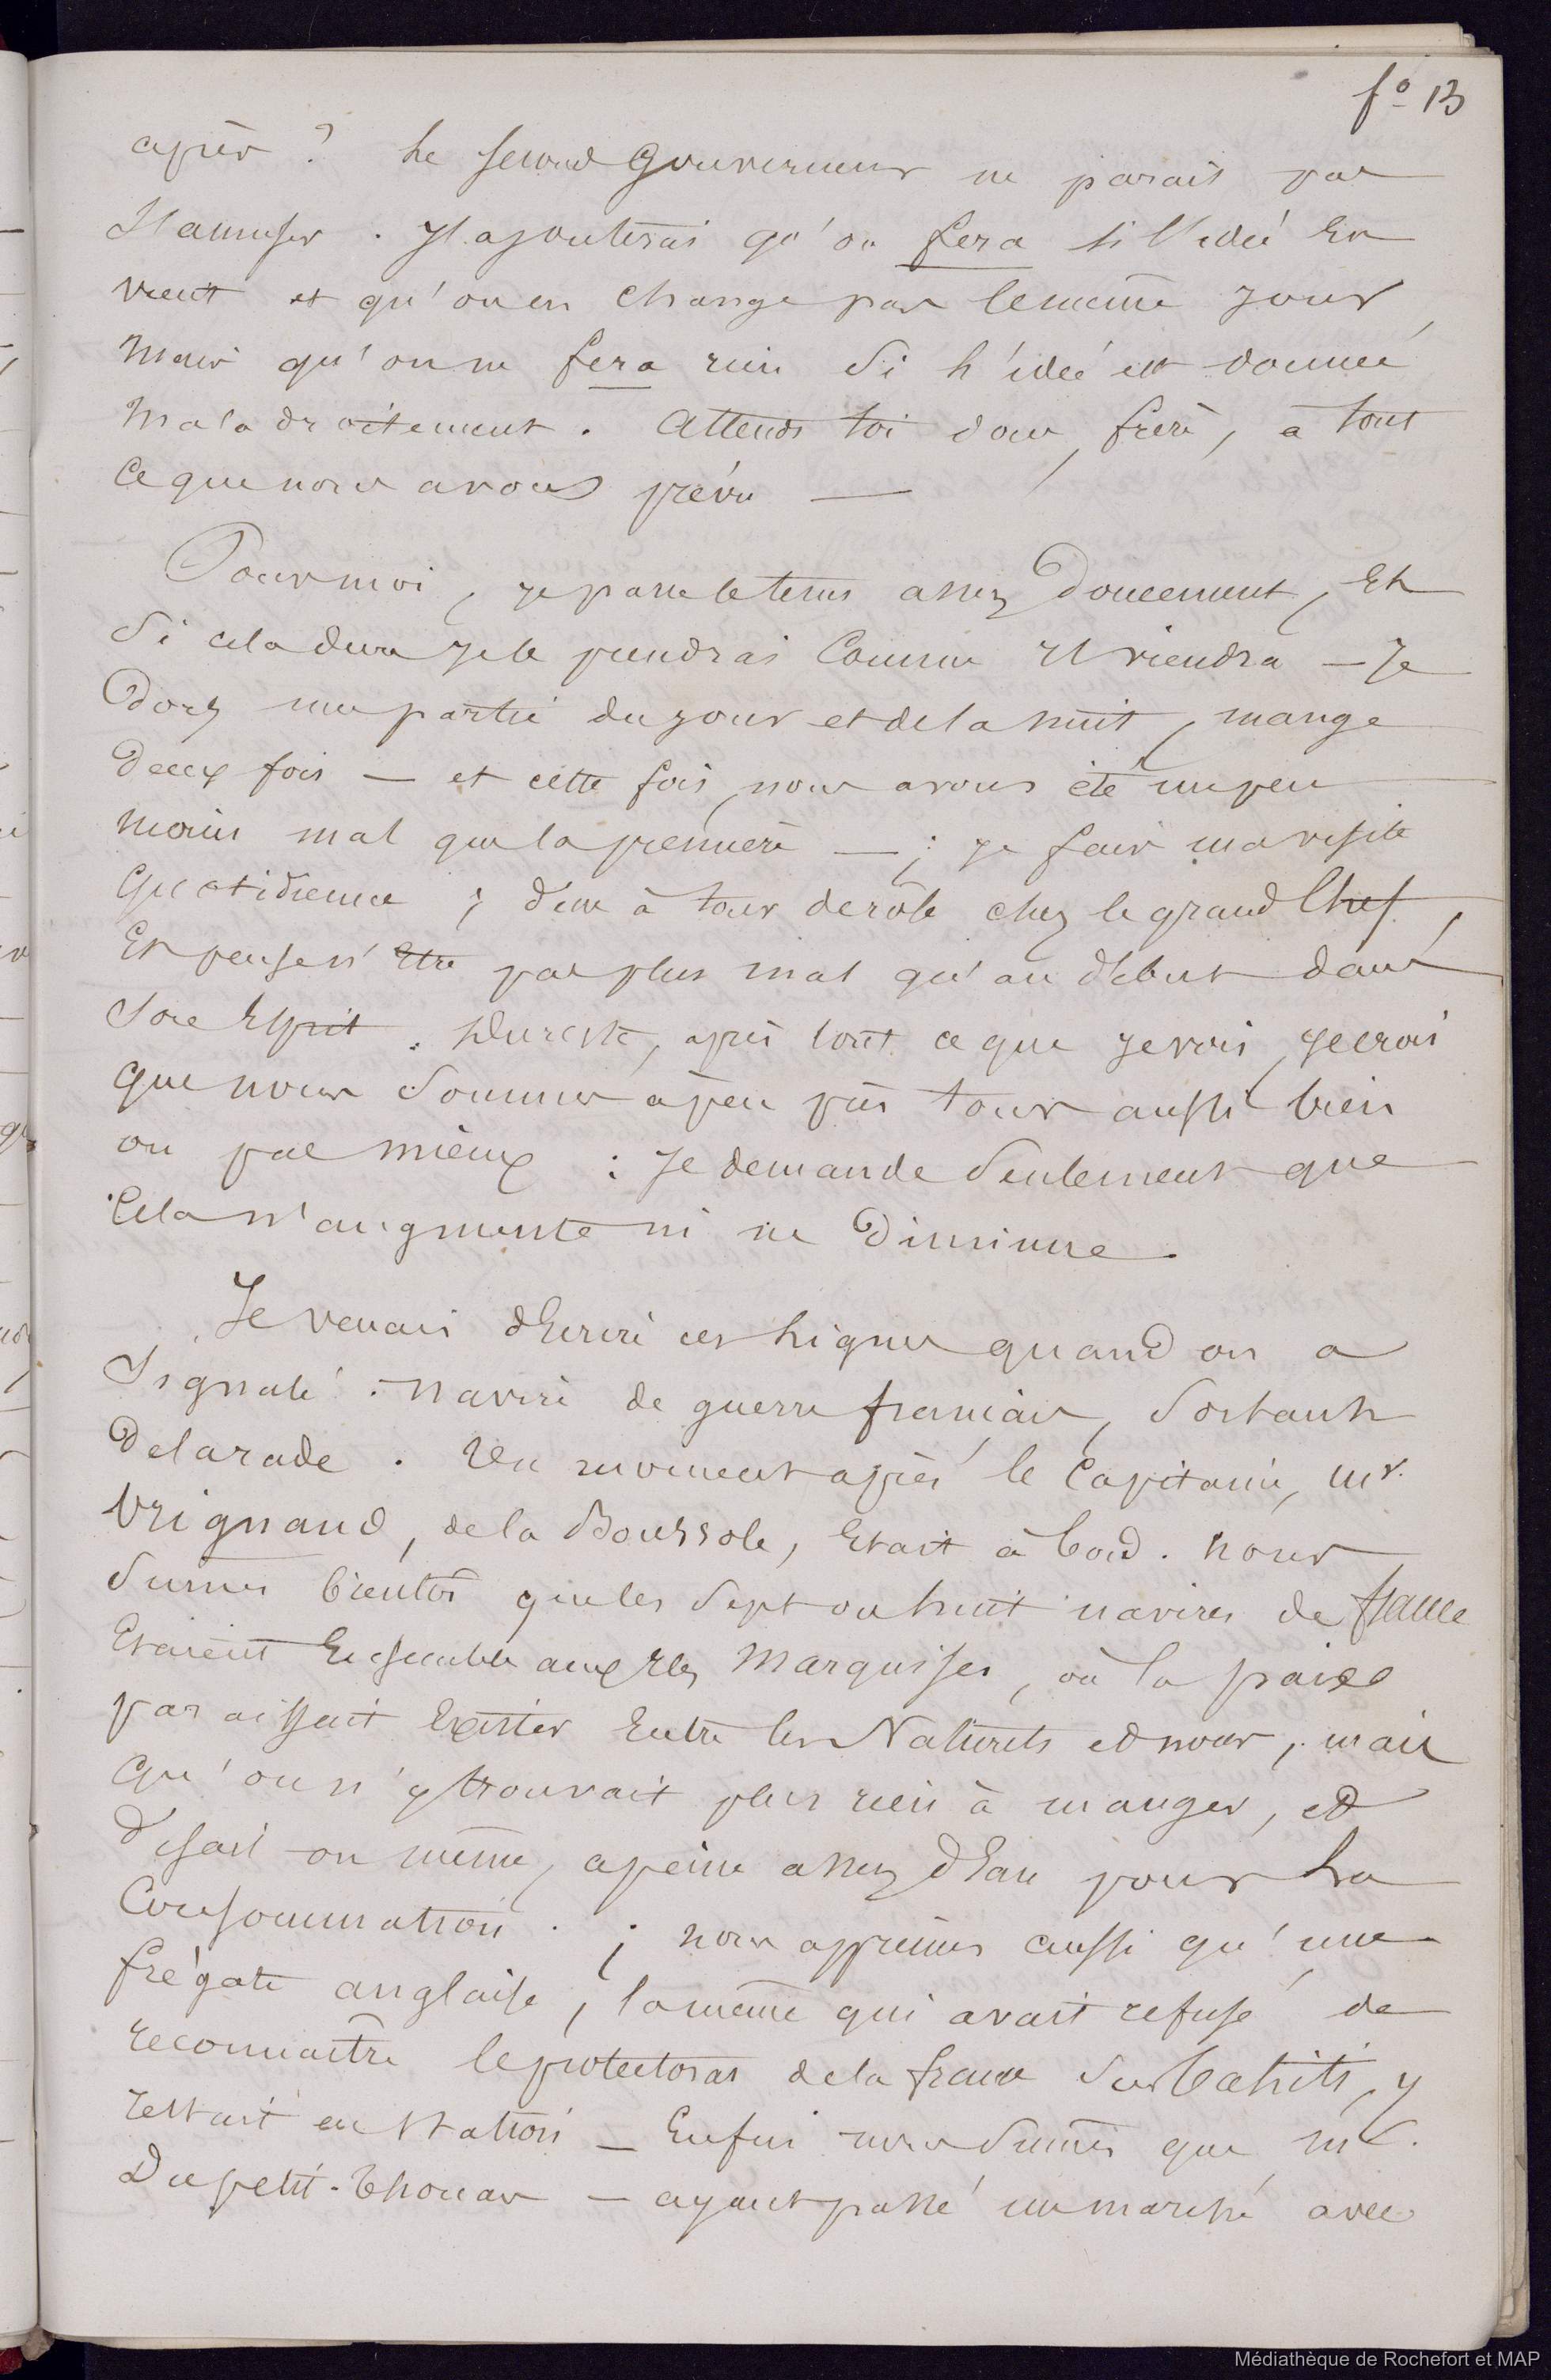 fo 13
après ? Le second Gouverneur ne parait pas
s'amuser . J'ajouterai qu'on fera si l'idée en
vient et qu'on en change pas le même jour,
mais qu'on ne fera rien si l'idée est donnée
maladroitement . Attends toi donc, frère, à tout
ce que nous avons prévu —
Pour moi, je passe le tems assez doucement, et
si cela dure je le prendrai comme il viendra — Je
dors une partie du jour et de la nuit, mange
deux fois — et cette fois, nous avons été un peu
moins mal que la première — ; je fais ma visite
quotidienne ; dine à tour de rôle chez le grand Chef,
et pense n'être pas plus mal qu'au début dans
son esprit . Du reste, après tout ce que je vois, je crois
que nous sommes à peu près tous aussi bien
ou pas mieux : Je demande seulement que
cela n'augmente ni ne diminue .
Je venais d'écrire ces lignes quand on a
signalé : navire de guerre français, sortant
de la rade . Un moment après le Capitaine, Mr.
Vrignaud, de la Boussole, était à bord . Nous
sumes bientôt que les sept ou huit navires de france
étaient ensemble aux iles Marquises, où la paix
paraissait exister entre les Naturels et nous, mais
qu'on n'y trouvait plus rien à manger, et
disait-on même, à peine assez d'eau pour la
consommation . ; nous apprimes aussi qu'une
frégate anglaise, la même qui avait refusé de
reconnaître le protectorat de la france sur Tahiti, y
restait en station — Enfin nous sumes que Mr.
Dupetit-Thouars — ayant passé un marché avec
Médiathèque de Rochefort et MAP